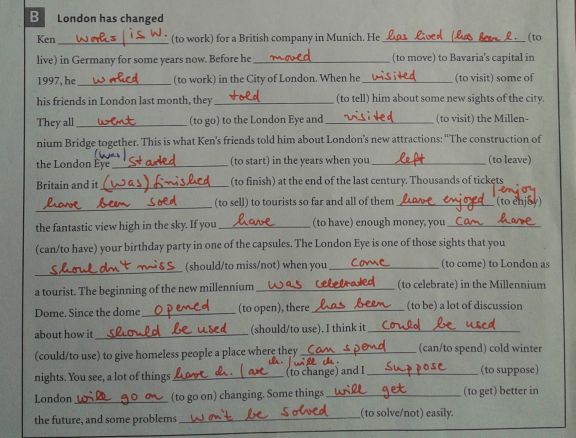 B London has changed
Ken works / is w. (to work) for a British company in Munich. He has lived / has been l. (to
live) in Germany for some years now. Before he moved (to move) to Bavaria's capital in
1997, he worked (to work) in the City of London. When he visited (to visit) some of
his friends in London last month, they told (to tell) him about some new sights of the city.
They all went (to go) to the London Eye and visited (to visit) the Millen-
nium Bridge together. This is what Ken's friends told him about London's new attractions: "The construction of
(was)
the London Eye started (to start) in the years when you left (to leave)
Britain and it (was) finished (to finish) at the end of the last century. Thousands of tickets
/ enjoy
have been sold (to sell) to tourists so far and all of them have enjoyed (to enjoy)
the fantastic view high in the sky. If you have (to have) enough money, you can have
(can/to have) your birthday party in one of the capsules. The London Eye is one of those sights that you
shouldn't miss (should/to miss/not) when you come (to come) to London as
a tourist. The beginning of the new millennium was celebrated (to celebrate) in the Millennium
Dome. Since the dome opened (to open), there has been (to be) a lot of discussion
about how it should be used (should/to use). I think it could be used
(could/to use) to give homeless people a place where they can spend (can/to spend) cold winter
ch. / will ch.
nights. You see, a lot of things have ch. / are (to change) and I suppose (to suppose)
London will go on (to go on) changing. Some things will get (to get) better in
the future, and some problems won't be solved (to solve/not) easily.